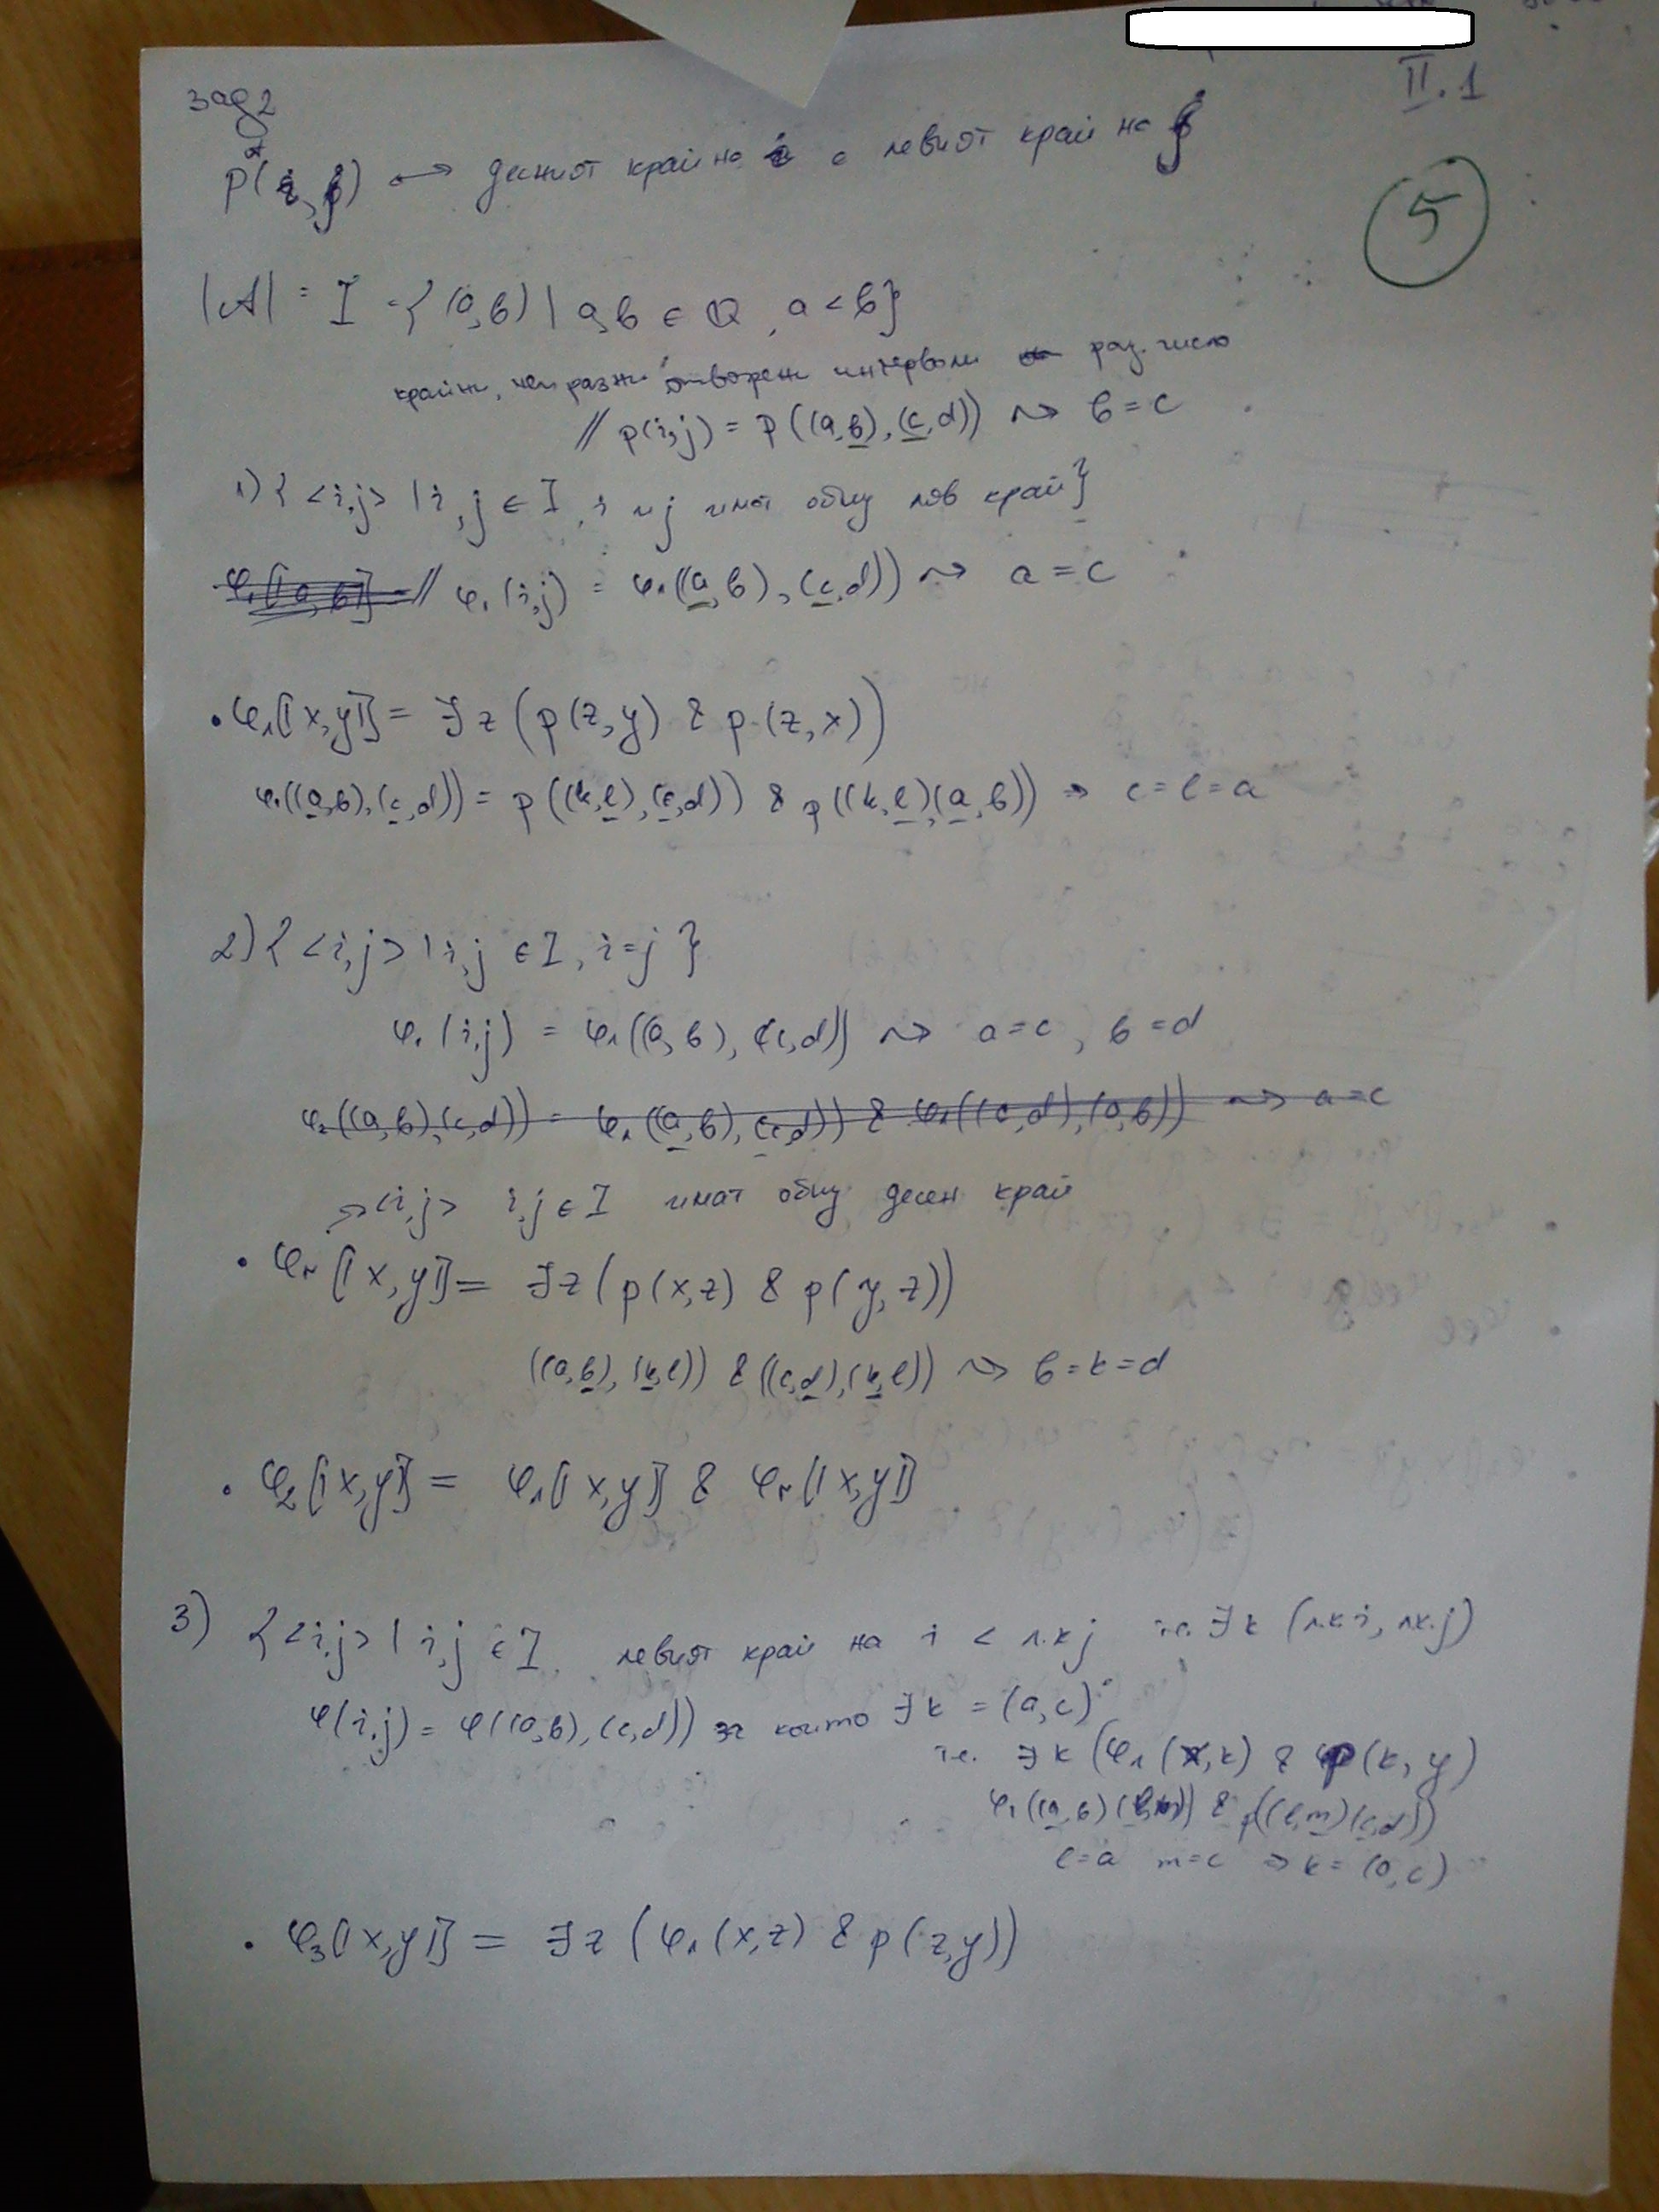 II.1
зад 2
p^A(i, j) ⟷ десният край на i е левият край на j
5
|A| = I = { (a,b) | a,b ∈ Q, a < b}
крайни, непразни, отворени интервали раз. число
// p(i,j) = p((a,b),(c,d)) ⇝ b = c
1) { <i,j> | i,j ∈ I, i и j имат общ ляв край}
// φ₁(i,j) = φ₁((a,b),(c,d)) ⇝ a = c
• φ₁⟦x,y⟧ = ∃z (p(z,y) & p(z,x))
φ₁((a,b),(c,d)) = p((k,l),(c,d)) & p((k,l)(a,b)) ⇒ c = l = a
2) { <i,j> | i,j ∈ I, i=j }
φ₁(i,j) = φ₁((a,b),(c,d)) ⇝ a=c, b=d
φ₂((a,b),(c,d)) = φ₁((a,b),(c,d)) & φ₁((c,d),(a,b)) ⇝ a=c
→<i,j> i,j ∈ I имат общ десен край
• φr⟦x,y⟧ = ∃z (p(x,z) & p(y,z))
((a,b),(k,l)) & ((c,d),(k,l)) ⇝ b=k=d
• φ₂⟦x,y⟧ = φ₁⟦x,y⟧ & φr⟦x,y⟧
3) { <i,j> | i,j ∈ I, левият край на i < л.к j т.е. ∃k (л.к i, лк.j)
φ(i,j) = φ((a,b),(c,d)) за които ∃k = (a,c)
т.е. ∃k (φ₁(x,k) & p(k,y)
φ₁((a,b)(l,m)) & p((l,m)(c,d))
l=a m=c ⇒ k = (a,c)
• φ₃⟦x,y⟧ = ∃z (φ₁(x,z) & p(z,y))